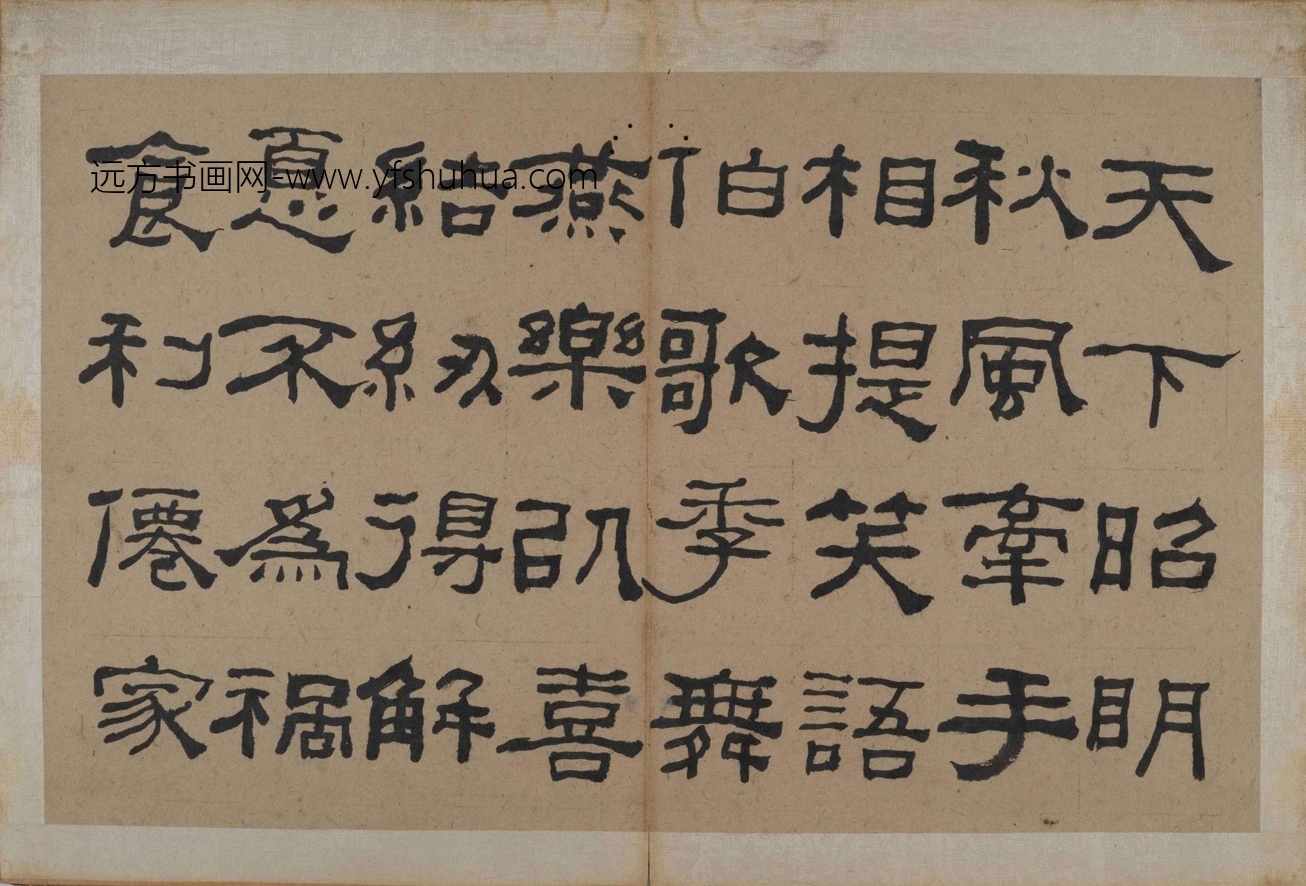 天下昭明
秋風牽手
相提笑語
伯歌季舞
燕樂以喜
結紉得解
憂不為禍
食利僊家
远方书画网-www.yfshuhua.com